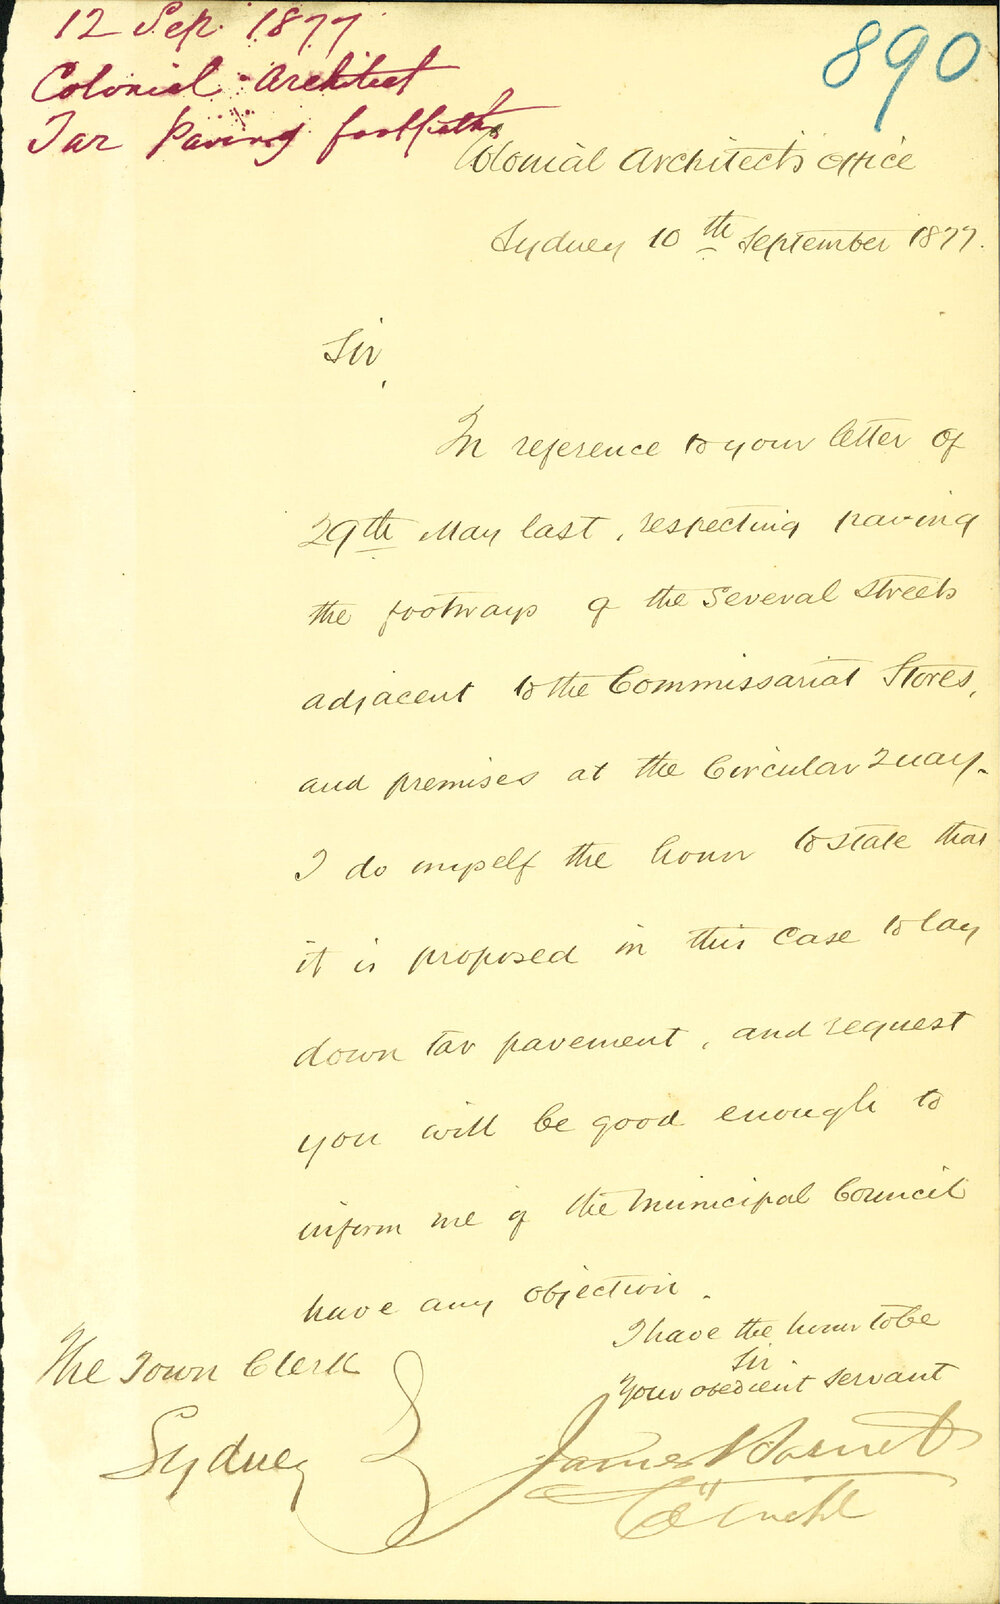 12 Sep. 1877
Colonial Architect
Tar Paving footpaths
890
Colonial Architect's Office
Sydney 10th September 1877.
Sir,
In reference to your letter of
29th May last, respecting paving
the footways of the several streets
adjacent to the Commissariat Stores,
and premises at the Circular Quay.
I do myself the honor to state that
it is proposed in this case to lay
down tar pavement, and request
you will be good enough to
inform me if the Municipal Council
have any objection.
I have the honor to be
Sir
Your obedient servant
James Barnet
Col Archt
The Town Clerk
Sydney